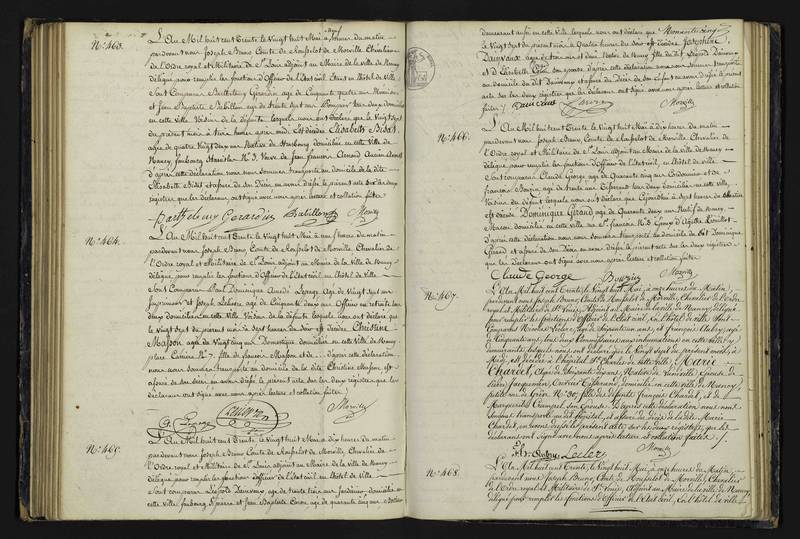 N.° 463.
L'An Mil huit cent Trente le Vingt huit Mai à heures du matin
pardevant nous Joseph Bruno Comte de Rouffelot de Morville, Chevalier
de l'Ordre royal et Militaire de St Louis adjoint au Maire de la Ville de Nancy
délégué pour remplir les fonctions d'Officier de l'Etat civil, Etant en l'hôtel de Ville
Sont Comparus Barthelemy Gerardin, agé de Cinquante quatre ans
et Jean Baptiste Babillon agé de trente sept ans tous deux domiciliés
en cette ville. Voisins de la défunte, lesquels nous ont déclaré que le Vingt sept
du présent mois à heures après midi, Est décédée Elisabeth Bidot,
agée de quatre Vingt deux ans Native de Strasbourg domiciliée en cette Ville de
Nancy, faubourg Stanislas N.° 3, Veuve de Jean François
d'après cette déclaration nous nous sommes transporté au domicile de la dite
Elisabeth Bidot et assuré de son Décès en avons dressé le présent acte sur les deux
registres, que les déclarans ont signé avec nous après lecture et collation faite
Barthelemy Gerardin Babillon Morville
N.° 464.
L'An Mil huit cent Trente le Vingt huit Mai à neuf heures du matin
pardevant nous Joseph Bruno Comte de Rouffelot de Morville, Chevalier de
l'Ordre royal et Militaire de St Louis adjoint au Maire de la Ville de Nancy
délégué pour remplir les fonctions d'Officier de l'Etat civil en l'hôtel de Ville
Sont Comparus Dominique Amédé Lepage agé de Vingt sept ans
Imprimeur et Joseph agé de Cinquante deux ans Officier en retraite tous
deux domiciliés en cette Ville. Voisins de la défunte lesquels nous ont déclaré que
le Vingt sept du présent mois à sept heures du soir est décédée Christine
Masson agée de Vingt cinq ans Domestique domiciliée en cette Ville de Nancy
place N.° 7 fille de françois Masson et de d'après cette déclaration
nous nous sommes transporté au domicile de la dite Christine Masson et
assuré de son décès, en avons dressé le présent acte sur les deux registres que les
déclarans ont signé avec nous après lecture et collation faite
A. Lepage Morville
N.° 465.
L'An Mil huit cent Trente le Vingt huit Mai à dix heures du matin
pardevant nous Joseph Bruno Comte de Rouffelot de Morville Chevalier de
l'Ordre royal et Militaire de St Louis, adjoint au Maire de la Ville de Nancy
délégué pour remplir les fonctions d'Officier de l'Etat civil en l'hôtel de Ville
Sont comparus Léopold agé de trente trois ans Jardinier domicilié en
cette Ville faubourg St Pierre et Jean Baptiste agé de quarante cinq ans
demeurant aussi en cette Ville lesquels nous ont déclaré que
le Vingt sept du présent mois à quatre heures du soir est décédée Joséphine
agée de trois mois et demi Native de Nancy fille du dit Léopold
et d'Elisabeth son épouse d'après cette déclaration nous nous sommes transporté
au domicile du dit et assuré du Décès de son Enfant en avons dressé le présent
acte sur les deux registres que les déclarans ont signé avec nous après lecture et collation
faites Morville
N.° 466.
L'An Mil huit cent Trente le Vingt huit Mai à dix heures du matin
pardevant nous Joseph Bruno Comte de Rouffelot de Morville Chevalier de
l'Ordre royal et Militaire de St Louis adjoint au Maire de la Ville de Nancy
délégué pour remplir les fonctions d'Officier de l'Etat civil en l'hôtel de Ville
Sont comparus Claude George agé de quarante cinq ans Cordonnier et
françois agé de trente ans tous deux domiciliés en cette Ville
Voisins du défunt lesquels nous ont déclaré que à sept heures du
est décédé Dominique Girard agé de quarante deux ans Natif de Nancy
Maçon domicilié en cette Ville rue St françois N.° Epoux d'Agathe
d'après cette déclaration nous nous sommes transporté au domicile du dit Dominique
Girard et assuré de son Décès en avons dressé le présent acte sur les deux registres
que les Déclarans ont signé avec nous après lecture et collation faite
Claude George Morville
N.° 467.
L'An Mil huit cent Trente le Vingt huit Mai, à onze heures du Matin,
pardevant nous Joseph Bruno, Comte de Rouffelot de Morville, Chevalier de l'Ordre
royal et Militaire de St Louis, Adjoint au Maire de la ville de Nancy, délégué
pour remplir les fonctions d'Officier de l'Etat Civil, En l'hôtel de ville. Sont
Comparus Nicolas Lecler, agé de cinquante ans, et françois Aubry, agé
de Cinquante ans, tous deux Employés aux inhumations en cette Ville, y
demeurants, lesquels nous ont déclaré que le Vingt sept du présent mois, à
Midi, est décédée à l'hôpital St Charles de cette Ville, Marie
Chardet, agée de Cinquante six ans, Native de Lunéville, Epouse de
Pierre Jacquemin, Ouvrier domicilié en cette ville de Nancy,
petite rue de Grève N.° 30; fille des défunts françois Chardet, et de
Marguerite François, son Epouse. D'après cette déclaration nous nous
sommes transporté au dit hôpital, et assuré du décès de la dite Marie
Chardet, en avons dressé le présent acte, sur les deux registres, que les
déclarans ont signé avec nous après lecture et collation faites.
Aubry Lecler Morville
N.° 468.
L'An Mil huit cent Trente, le Vingt huit Mai, à onze heures du Matin,
pardevant nous Joseph Bruno, Comte de Rouffelot de Morville, Chevalier
de l'Ordre royal et Militaire de St Louis, Adjoint au Maire de la ville de Nancy,
délégué pour remplir les fonctions d'Officier de l'Etat Civil, En l'hôtel de ville